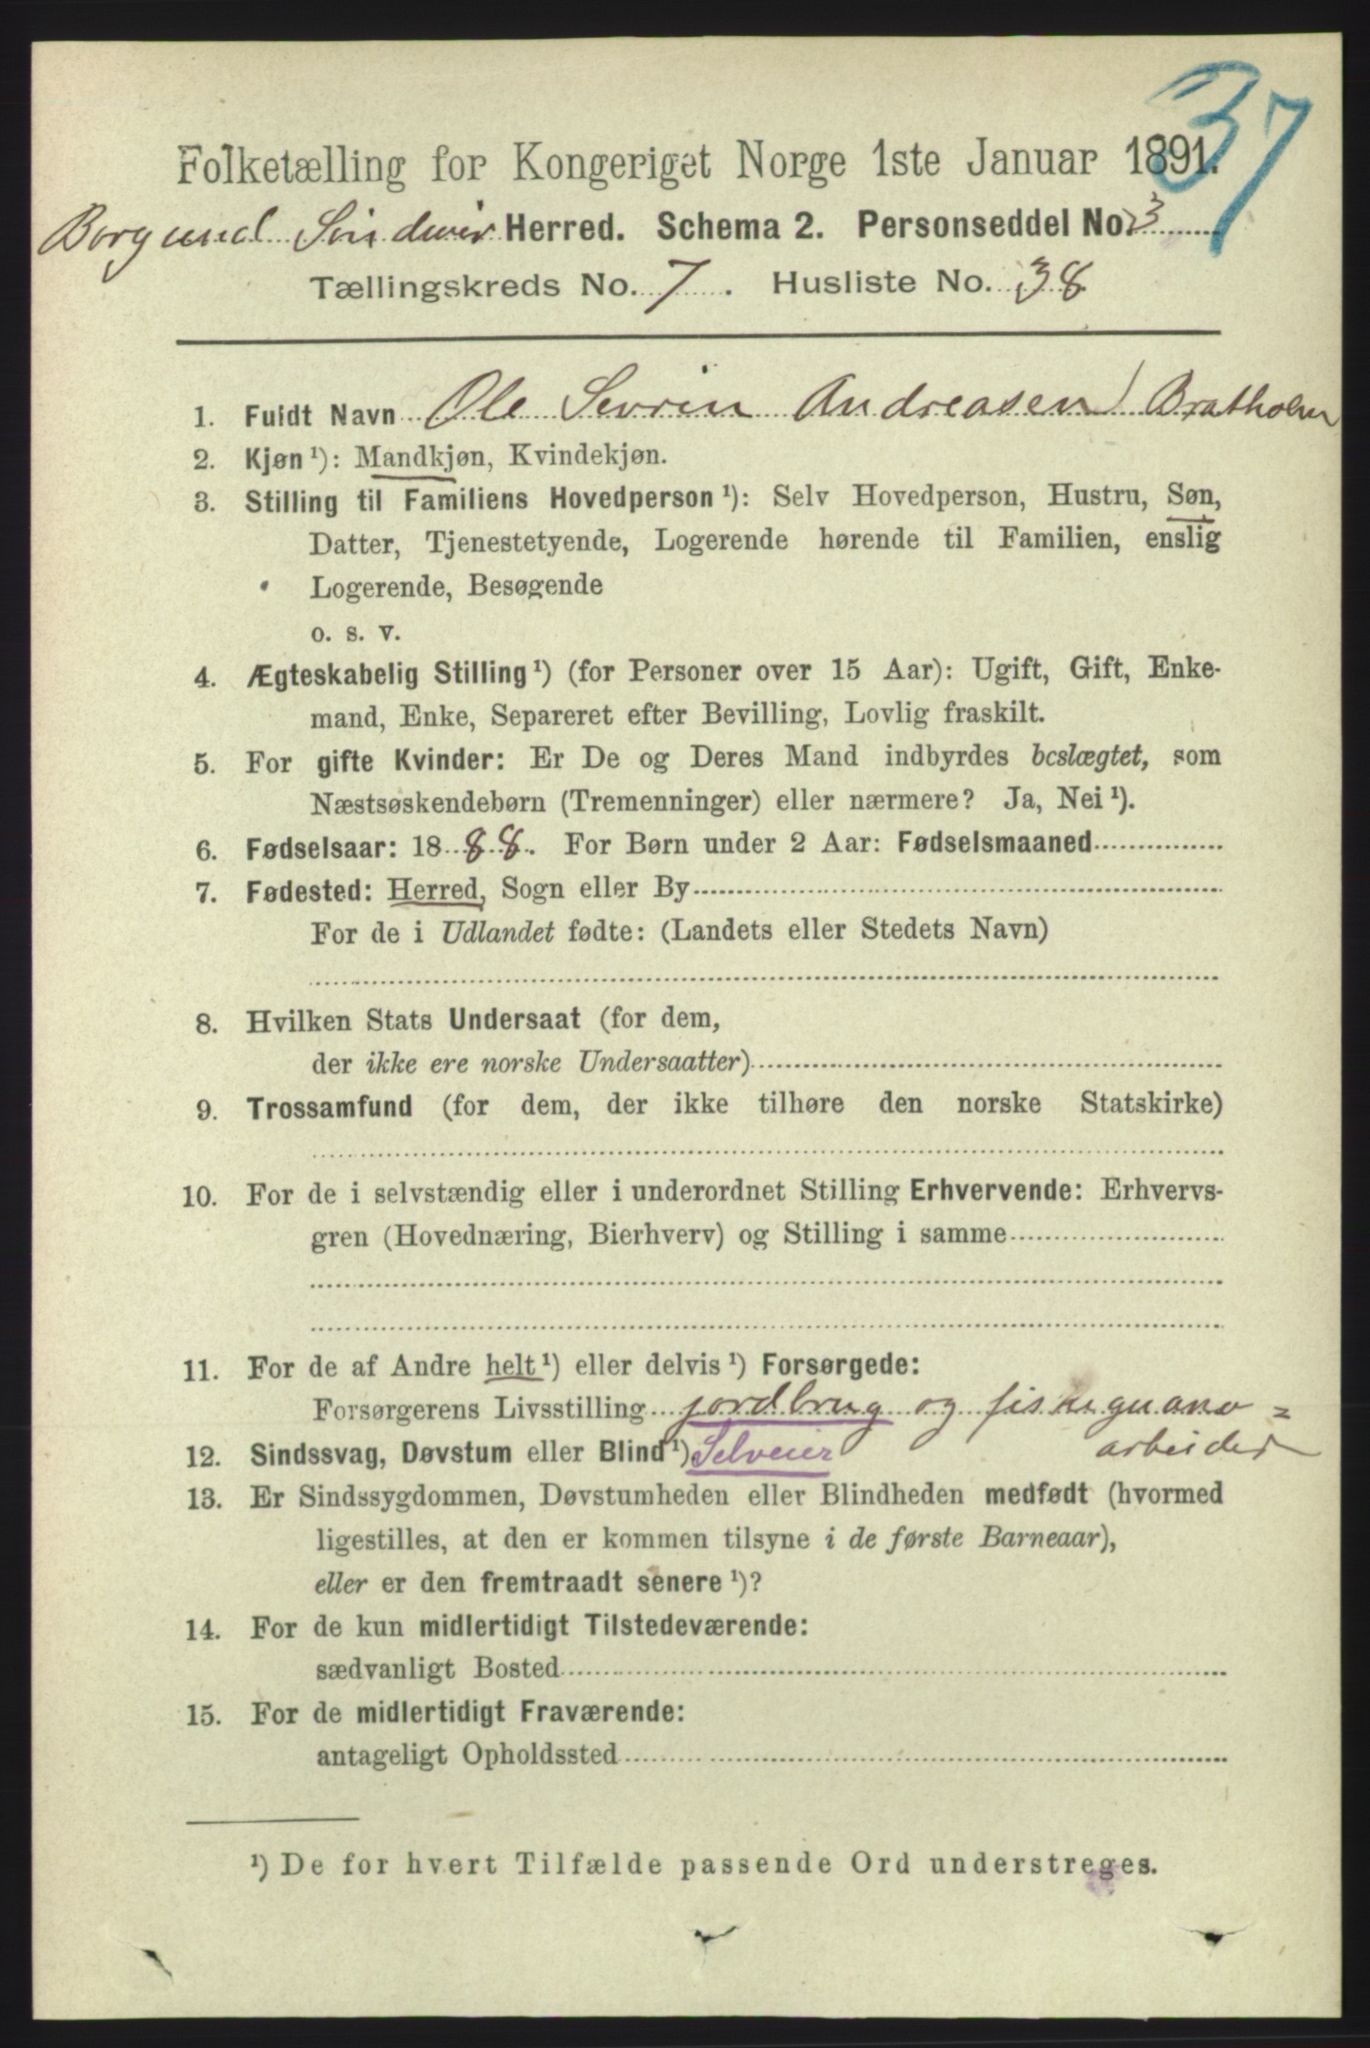 37
Folketælling for Kongeriget Norge 1ste Januar 1891.
Borgund Herred. Schema 2. Personseddel No. 3
Tællingskreds No. 7. Husliste No. 38
1. Fuldt Navn Ole Sevrin Andreasen / Bratholm
2. Kjøn¹): Mandkjøn, Kvindekjøn.
3. Stilling til Familiens Hovedperson¹): Selv Hovedperson, Hustru, Søn,
Datter, Tjenestetyende, Logerende hørende til Familien, enslig
Logerende, Besøgende
o. s. v.
4. Ægteskabelig Stilling¹) (for Personer over 15 Aar): Ugift, Gift, Enke-
mand, Enke, Separeret efter Bevilling, Lovlig fraskilt.
5. For gifte Kvinder: Er De og Deres Mand indbyrdes beslægtet, som
Næstsøskendebørn (Tremenninger) eller nærmere? Ja, Nei¹).
6. Fødselsaar: 1888. For Børn under 2 Aar: Fødselsmaaned
7. Fødested: Herred, Sogn eller By
For de i Udlandet fødte: (Landets eller Stedets Navn)
8. Hvilken Stats Undersaat (for dem,
der ikke ere norske Undersaatter)
9. Trossamfund (for dem, der ikke tilhøre den norske Statskirke)
10. For de i selvstændig eller i underordnet Stilling Erhvervende: Erhvervs-
gren (Hovednæring, Bierhverv) og Stilling i samme
11. For de af Andre helt¹) eller delvis¹) Forsørgede:
Forsørgerens Livsstilling jordbrug og fiskeguano=
arbeider
12. Sindssvag, Døvstum eller Blind¹) Selveier
13. Er Sindssygdommen, Døvstumheden eller Blindheden medfødt (hvormed
ligestilles, at den er kommen tilsyne i de første Barneaar),
eller er den fremtraadt senere¹)?
14. For de kun midlertidigt Tilstedeværende:
sædvanligt Bosted
15. For de midlertidigt Fraværende:
antageligt Opholdssted
¹) De for hvert Tilfælde passende Ord understreges.